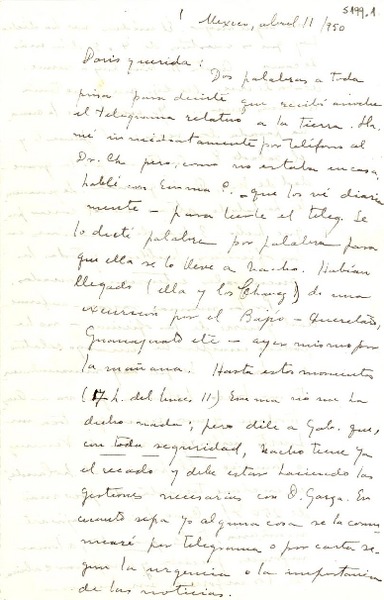 5199.1
1 Mexico, abril 11/950
Doris querida:
Dos palabras a toda
prisa para decirte que recibí anoche
el telegrama relativo a la tierra. Lla
mé inmediatamente por teléfono al
Dr. Ch pero, como no estaba en casa,
hablé con Emma P. - que los vé diaria
mente - para leerle el teleg. Se
lo dicté palabra por palabra para
que ella se lo lleve a Nacho. Habían
llegado (ella y los Chavez) de una
excursión por el Bajío - Querétaro,
Guanajuato etc - ayer mismo por
la mañana. Hasta estos momentos
(17 h. del lunes 11) Emma no me ha
dicho nada; pero dile a Gab. que,
con toda seguridad, Nacho tiene ya
el recado y debe estar haciendo las
gestiones necesarias con D. Garza. En
cuanto sepa yo alguna cosa se la comu
nicaré por telegrama o por carta se
gún la urgencia o la importancia
de las noticias.